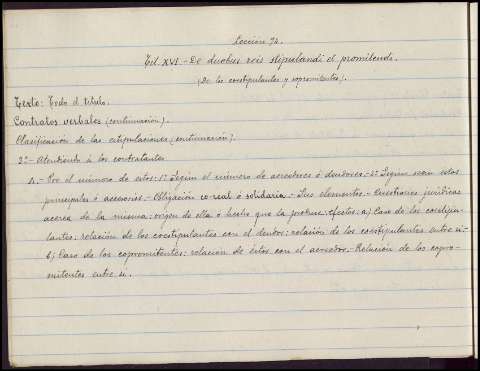 Lección 74.
Tit. XVI - De duobus reis stipulandi et promittendi.
(De los coestipulantes y copromitentes).
Texto: Todo el título.
Contratos verbales (continuación).
Clasificación de las estipulaciones (continuación).
2º - Atendiendo á los contratantes
A. - Por el número de estos: 1º Según el número de acreedores ó deudores - 2º Según sean estos
principales ó accesorios. - Obligación co-real ó solidaria. - Sus elementos. - Cuestiones jurídicas
acerca de la misma: origen de ella ó hecho que la produce: efectos: a) Caso de los coestipu-
lantes: relación de los coestipulantes con el deudor: relación de los coestipulantes entre sí -
b) Caso de los copromitentes: relación de éstos con el acreedor - Relación de los copro-
mitentes entre sí.